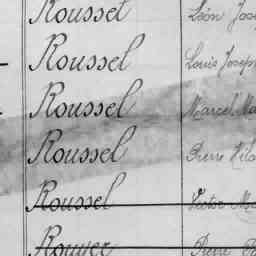 Rousset Léon
Roussel Louis Joseph
Roussel Marcel
Roussel Pierre
Roussel Victor
Rouyer Pierre